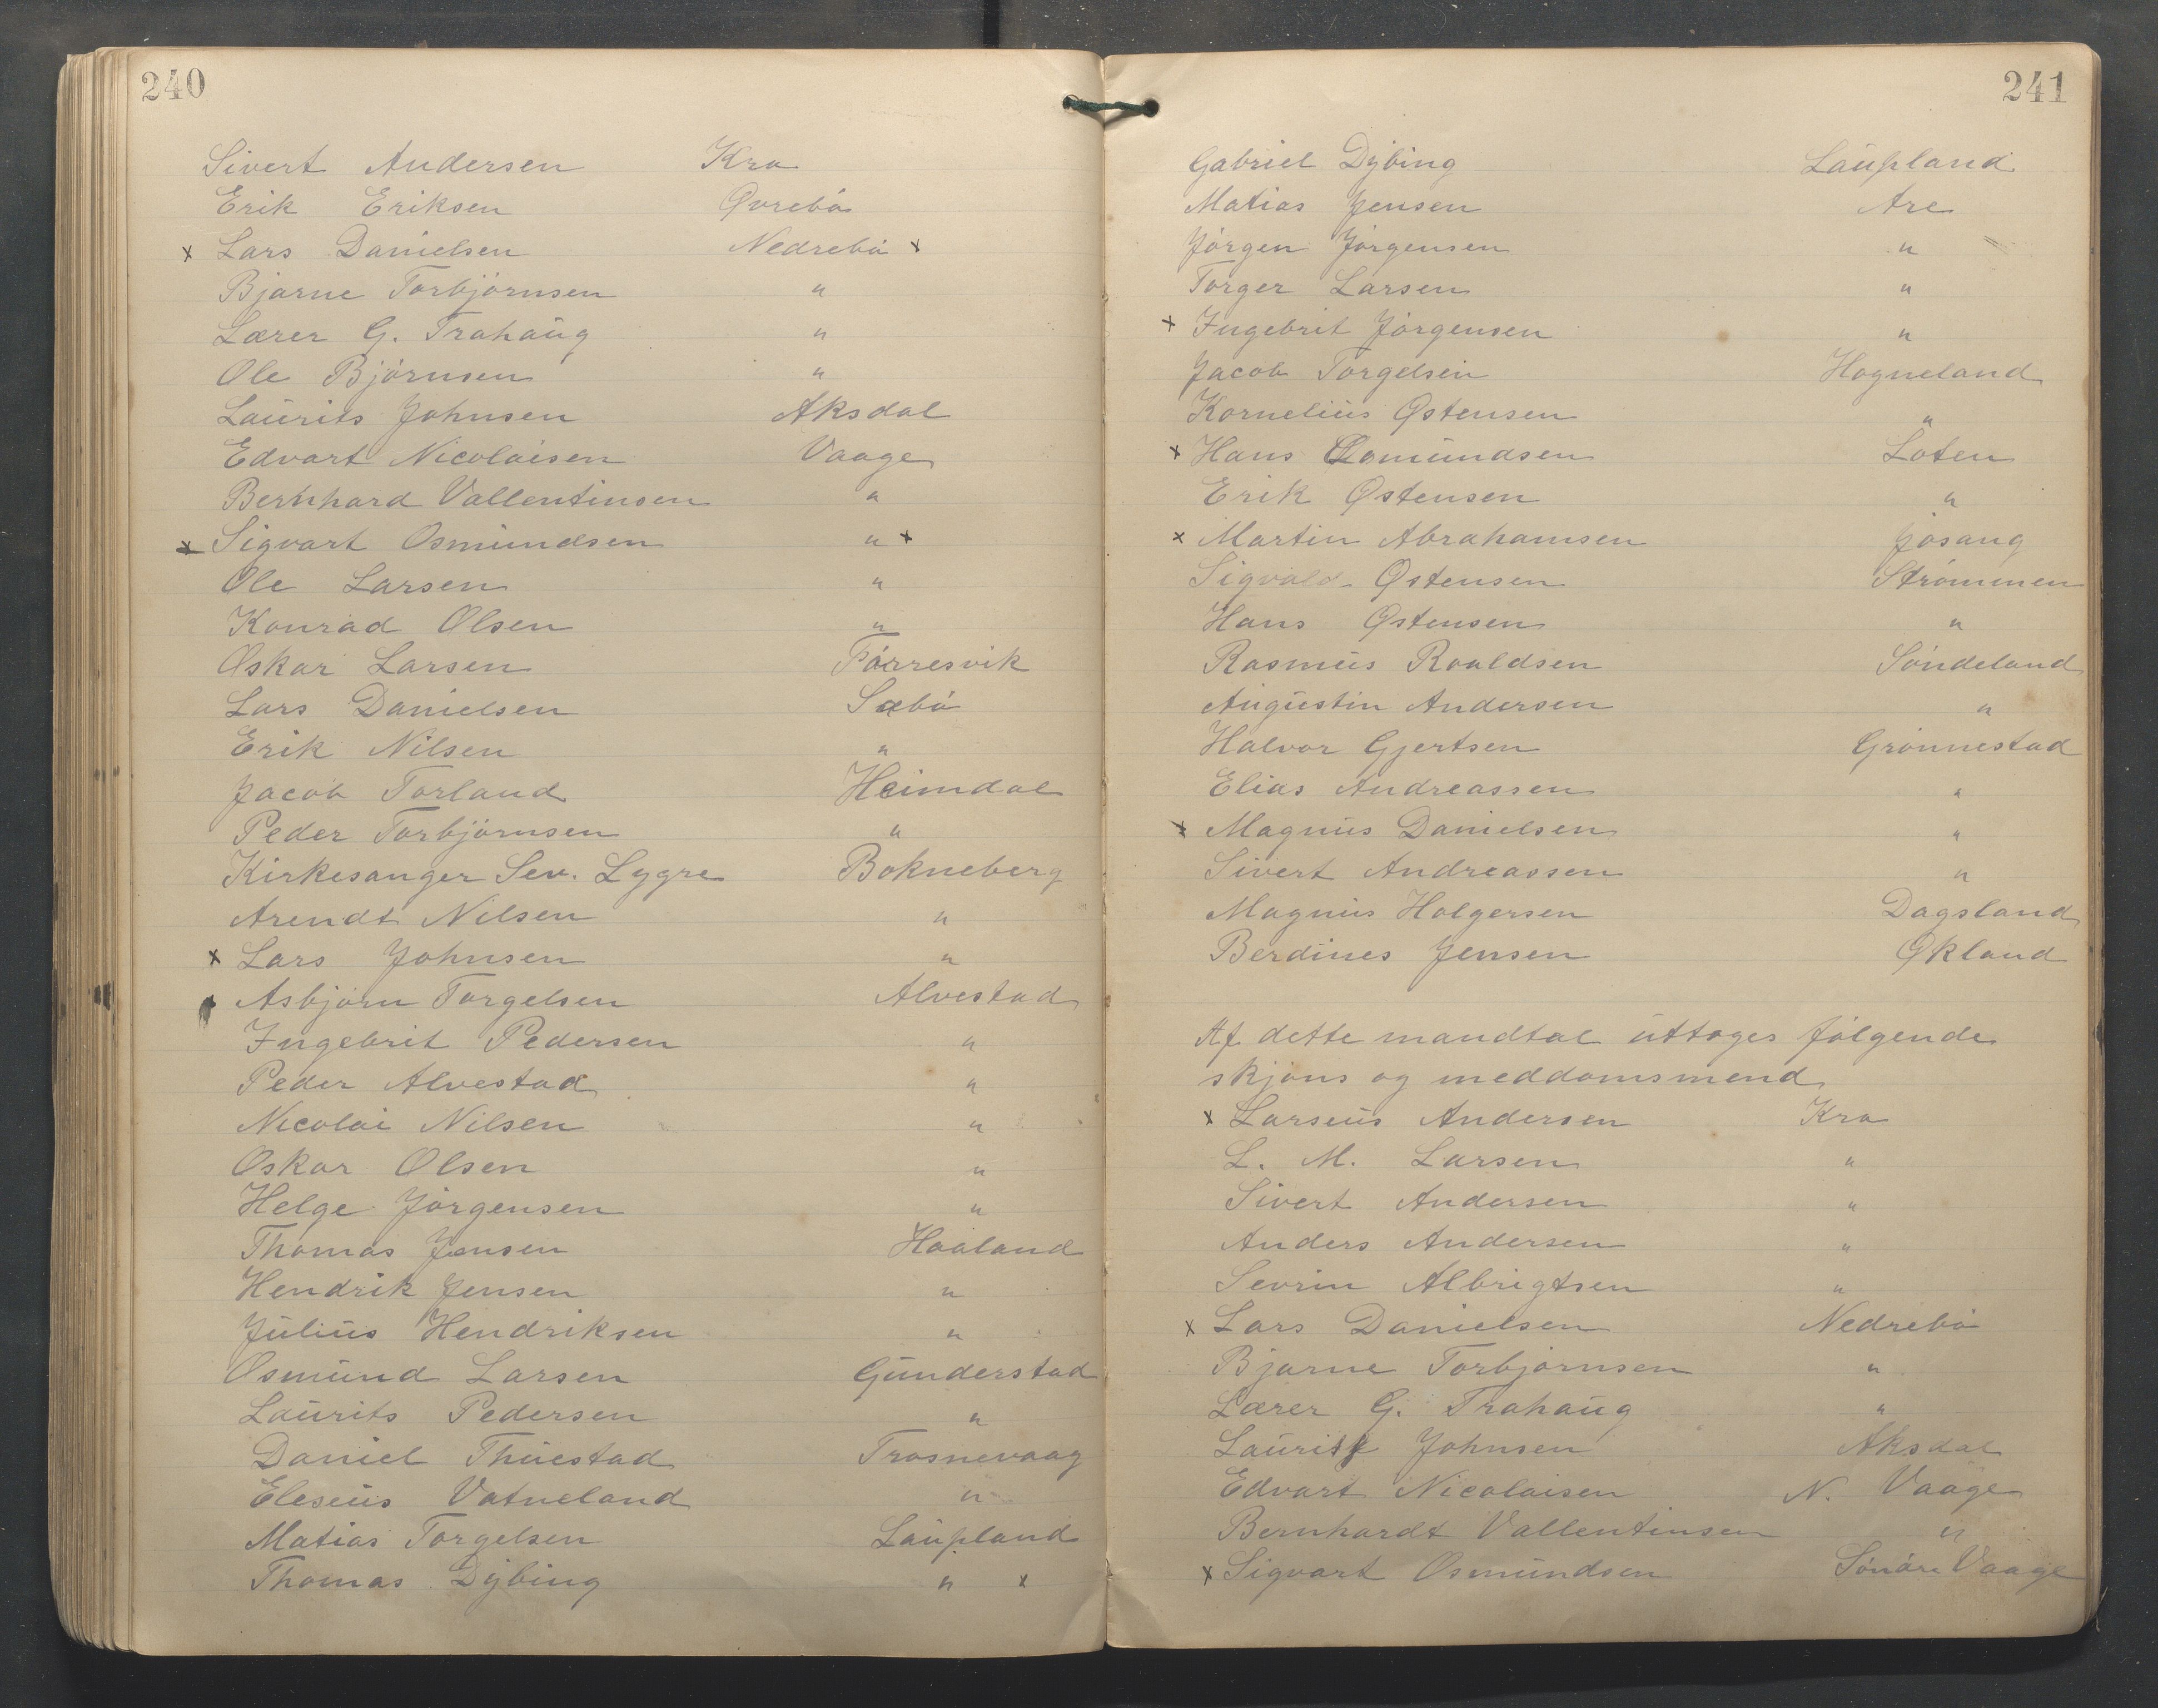 240
Sivert Andersen Kro
Erik Eriksen Øvrebö
x Lars Danielsen Nedrebö x
Bjarne Torbjörnsen "
Lærer G. Trahaug "
Ole Björnsen "
Laurits Johnsen Aksdal
Edvart Nicolaisen Vaage
Bernhard Vallentinsen "
x Sigvart Osmundsen " x
Ole Larsen "
Konrad Olsen "
Oskar Larsen Förresvik
Lars Danielsen Sæbö
Erik Nilsen "
Jacob Torland Heimdal
Peder Torbjörnsen "
Kirkesanger Sev. Lygre Bokneberg
Arendt Nilsen "
x Lars Johnsen "
Asbjørn Torgelsen Alvestad
Ingebrit Pedersen "
Peder Alvestad "
Nicolai Nilsen "
Oskar Olsen "
Helge Jörgensen "
Thomas Jensen Haaland
Hendrik Jensen "
Julius Hendriksen "
Osmund Larsen Gunderstad
Laurits Pedersen "
Daniel Thuestad Trosnevaag
Eleseus Vatneland "
Matias Torgelsen Laupland
Thomas Dybing " x
241
Gabriel Dybing Laupland
Matias Jensen Are
Jörgen Jörgensen "
Torger Larsen "
x Ingebrit Jörgensen "
Jacob Torgelsen Hogneland
Kornelius Østensen "
x Hans Osmundsen Loten
Erik Østensen "
x Martin Abrahamsen Jøsang
Sigvald Østensen Strömmen
Hans Østensen "
Rasmus Roaldsen Söndeland
Augustin Andersen "
Halvor Gjertsen Grönnestad
Elias Andreassen "
x Magnus Danielsen "
Sivert Andreassen "
Magnus Holgersen Dagsland
Berdines Jensen Økland
Af dette mandtal uttages fölgende
skjøns og meddomsmend
x Larseus Andersen Kro
L. M. Larsen "
Sivert Andersen "
Anders Andersen "
Sevrin Albrigtsen "
x Lars Danielsen Nedrebö
Bjarne Torbjørnsen "
Lærer G. Trahaug "
Laurits Johnsen Aksdal
Edvart Nicolaisen N. Vaage
Bernhardt Vallentinsen "
x Sigvart Osmundsen Söndre Vaage